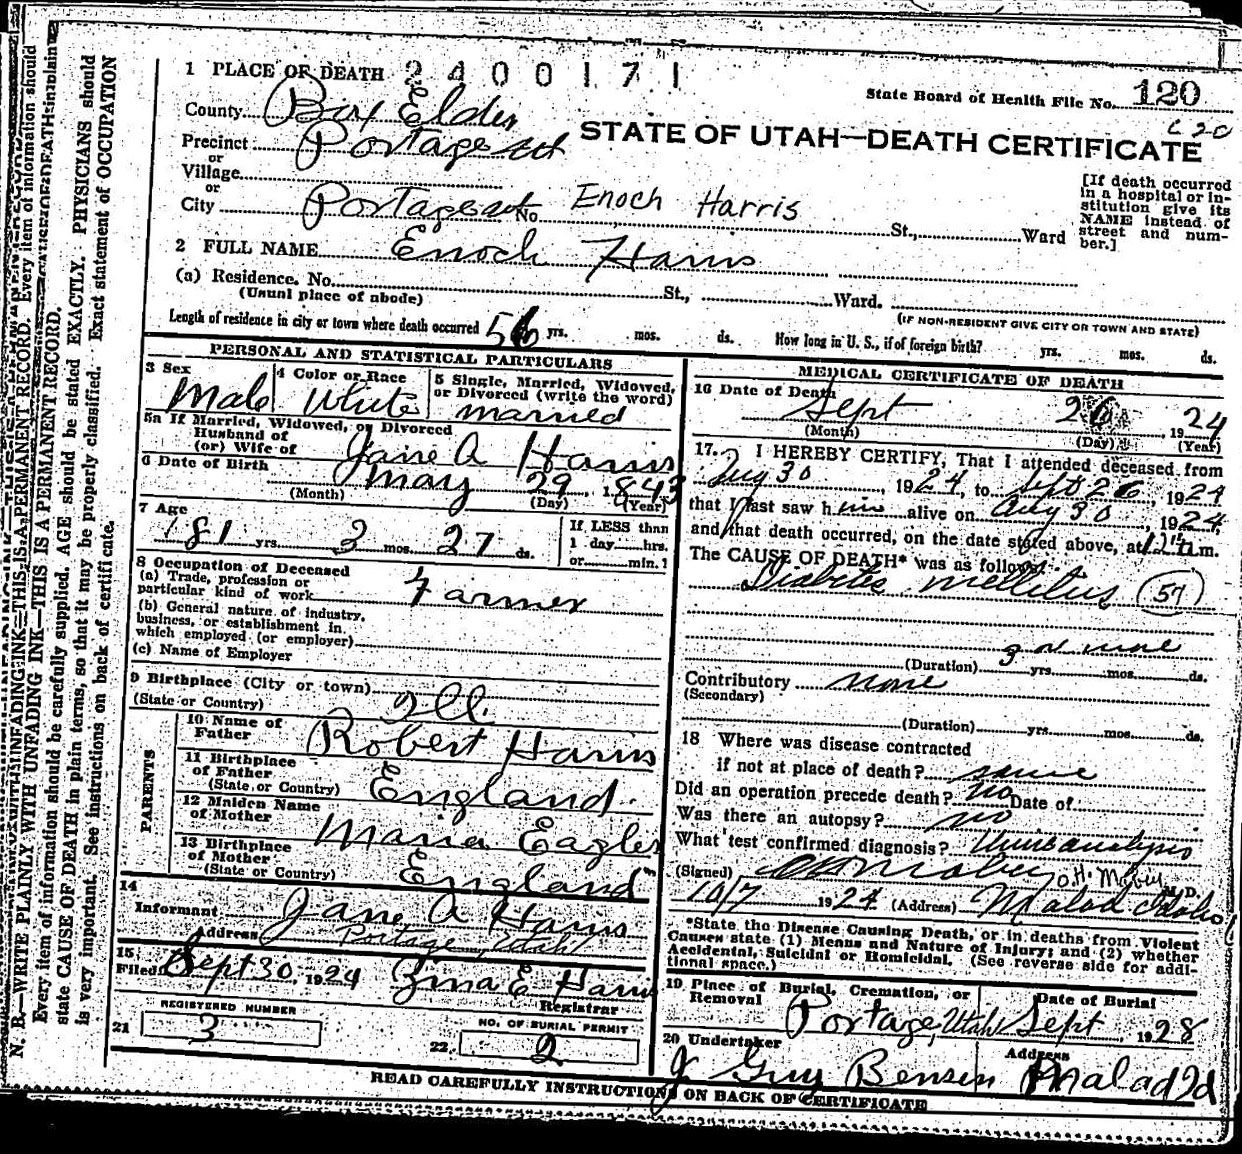 N. B.—WRITE PLAINLY WITH UNFADING INK—THIS IS A PERMANENT RECORD.
Every item of information should be carefully supplied. AGE should be stated EXACTLY. PHYSICIANS should
state CAUSE OF DEATH in plain terms, so that it may be properly classified. Exact statement of OCCUPATION
is very important. See instructions on back of certificate.
1 PLACE OF DEATH 2400171
State Board of Health File No. 120
County Box Elder
C 20
STATE OF UTAH—DEATH CERTIFICATE
Precinct Portage
or
Village
or
City Portage No. Enoch Harris St., Ward
[If death occurred
in a hospital or in-
stitution give its
NAME instead of
street and num-
ber.]
2 FULL NAME Enoch Harris
(a) Residence. No. St., Ward.
(Usual place of abode)
(IF NON-RESIDENT GIVE CITY OR TOWN AND STATE)
Length of residence in city or town where death occurred 56 yrs. mos. ds. How long in U. S., if of foreign birth? yrs. mos. ds.
PERSONAL AND STATISTICAL PARTICULARS
3 Sex Male
4 Color or Race White
5 Single, Married, Widowed,
or Divorced (write the word)
married
5a If Married, Widowed, or Divorced
Husband of
(or) Wife of Jane A Harris
6 Date of Birth May 29, 1843
(Month) (Day) (Year)
7 Age
81 yrs. 3 mos. 27 ds.
If LESS than
1 day......hrs.
or......min.?
8 Occupation of Deceased
(a) Trade, profession or
particular kind of work Farmer
(b) General nature of industry,
business, or establishment in
which employed (or employer)
(c) Name of Employer
9 Birthplace (City or town)
(State or Country) Ill.
PARENTS
10 Name of
Father Robert Harris
11 Birthplace
of Father
(State or Country) England.
12 Maiden Name
of Mother Maria Eagles
13 Birthplace
of Mother
(State or Country) England
14
Informant Jane A Harris
Address Portage, Utah
15
Filed Sept 30, 1924 Zina E Harris
Registrar
REGISTERED NUMBER
21 3
NO. OF BURIAL PERMIT
22. 2
MEDICAL CERTIFICATE OF DEATH
16 Date of Death
Sept 26, 1924
(Month) (Day) (Year)
17. I HEREBY CERTIFY, That I attended deceased from
Aug 30, 1924, to Sept 26, 1924
that I last saw him alive on Aug 30, 1924,
and that death occurred, on the date stated above, at 12 m.
The CAUSE OF DEATH* was as follows:
Diabites mellitus (57)
(Duration) 3 or more yrs. mos. ds.
Contributory none
(Secondary)
(Duration) yrs. mos. ds.
18 Where was disease contracted
if not at place of death? same
Did an operation precede death? no Date of
Was there an autopsy? no
What test confirmed diagnosis? Urine analysis
(Signed) O.H. Mabey M. D.
10/7 1924 (Address) Malad Idaho
*State the Disease Causing Death, or in deaths from Violent
Causes state (1) Means and Nature of Injury; and (2) whether
Accidental, Suicidal or Homicidal. (See reverse side for addi-
tional space.)
19 Place of Burial, Cremation, or
Removal Portage, Utah
Date of Burial
Sept, 1928
20 Undertaker
J Guy Bensen
Address
Malad Id
READ CAREFULLY INSTRUCTIONS ON BACK OF CERTIFICATE